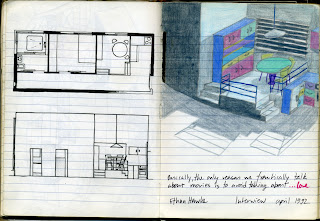 Basically, the only reason we frantically talk
about movies is to avoid talking about ...love
Ethan Hawke Interview april 1992